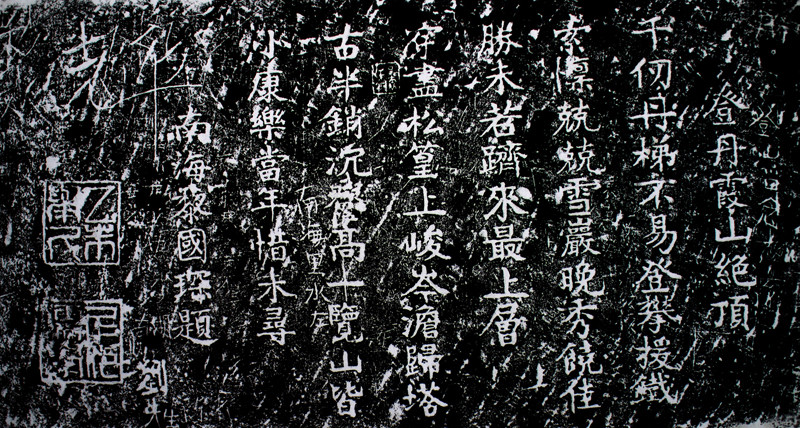 登丹霞山絕頂
千仞丹梯不易登攀援鐵
索懍兢兢雪巖晚秀饒佳
勝未若躋來最上層
穿盡松篁上峻岑澹歸塔
古半銷沉登高一覽山皆
小康樂當年惜未尋
南海里水
南海黎國琛題
劉